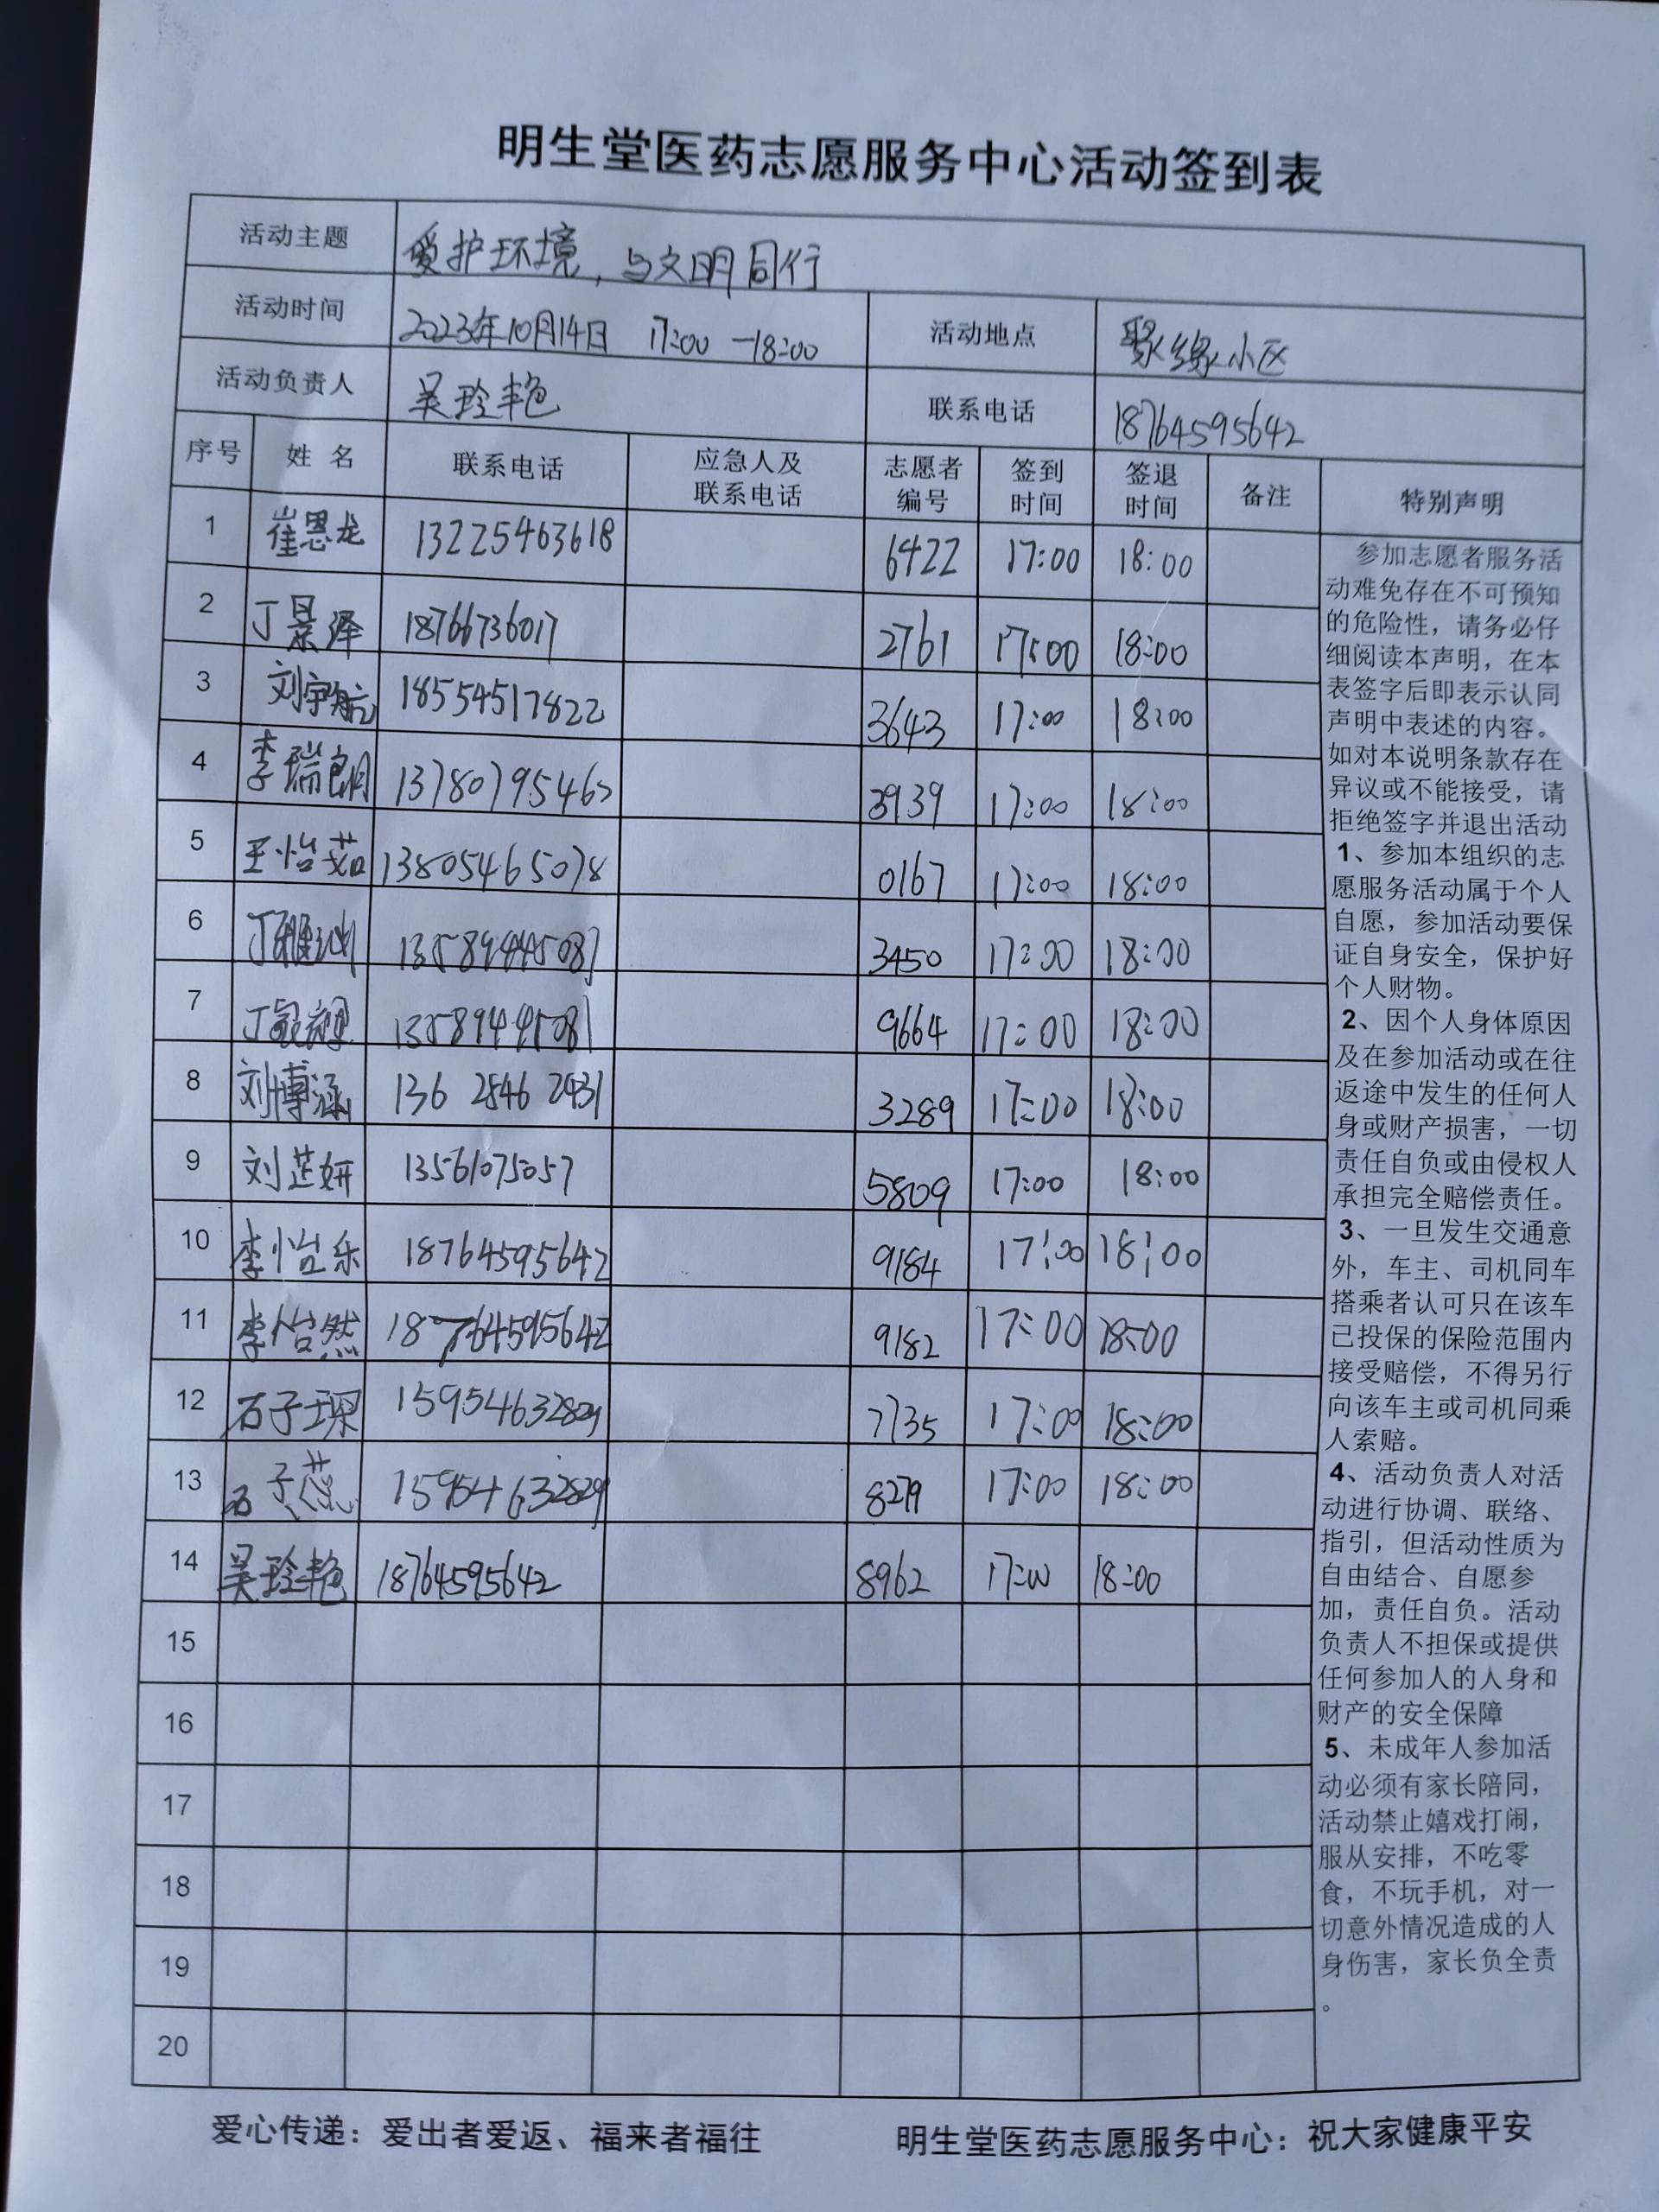 明生堂医药志愿服务中心活动签到表
活动主题 爱护环境，与文明同行
活动时间 2023年10月14日 17:00-18:00 活动地点 聚缘小区
活动负责人 吴玲艳 联系电话 18764595642
序号 姓名 联系电话 应急人及联系电话 志愿者编号 签到时间 签退时间 备注 特别声明
1 崔恩龙 13225463618 6422 17:00 18:00
2 丁景泽 18766736017 2761 17:00 18:00
3 刘宇航 18554517822 3643 17:00 18:00
4 李瑞朗 3939 17:00 18:00
5 王怡茹 13805465078 0167 17:00 18:00
6 3450 17:00 18:00
7 9664 17:00 18:00
8 刘博涵 136 2546 2431 3289 17:00 18:00
9 刘芷妍 13561075057 5809 17:00 18:00
10 李怡乐 18764595642 9184 17:00 18:00
11 李怡然 18764595642 9182 17:00 18:00
12 石子琛 15954632829 7735 17:00 18:00
13 石子蕊 15954632829 8279 17:00 18:00
14 吴玲艳 18764595642 8962 17:00 18:00
15
16
17
18
19
20
参加志愿者服务活
动难免存在不可预知
的危险性，请务必仔
细阅读本声明，在本
表签字后即表示认同
声明中表述的内容。
如对本说明条款存在
异议或不能接受，请
拒绝签字并退出活动
1、参加本组织的志
愿服务活动属于个人
自愿，参加活动要保
证自身安全，保护好
个人财物。
2、因个人身体原因
及在参加活动或在往
返途中发生的任何人
身或财产损害，一切
责任自负或由侵权人
承担完全赔偿责任。
3、一旦发生交通意
外，车主、司机同车
搭乘者认可只在该车
已投保的保险范围内
接受赔偿，不得另行
向该车主或司机同乘
人索赔。
4、活动负责人对活
动进行协调、联络、
指引，但活动性质为
自由结合、自愿参
加，责任自负。活动
负责人不担保或提供
任何参加人的人身和
财产的安全保障
5、未成年人参加活
动必须有家长陪同，
活动禁止嬉戏打闹，
服从安排，不吃零
食，不玩手机，对一
切意外情况造成的人
身伤害，家长负全责
。
爱心传递：爱出者爱返、福来者福往 明生堂医药志愿服务中心：祝大家健康平安